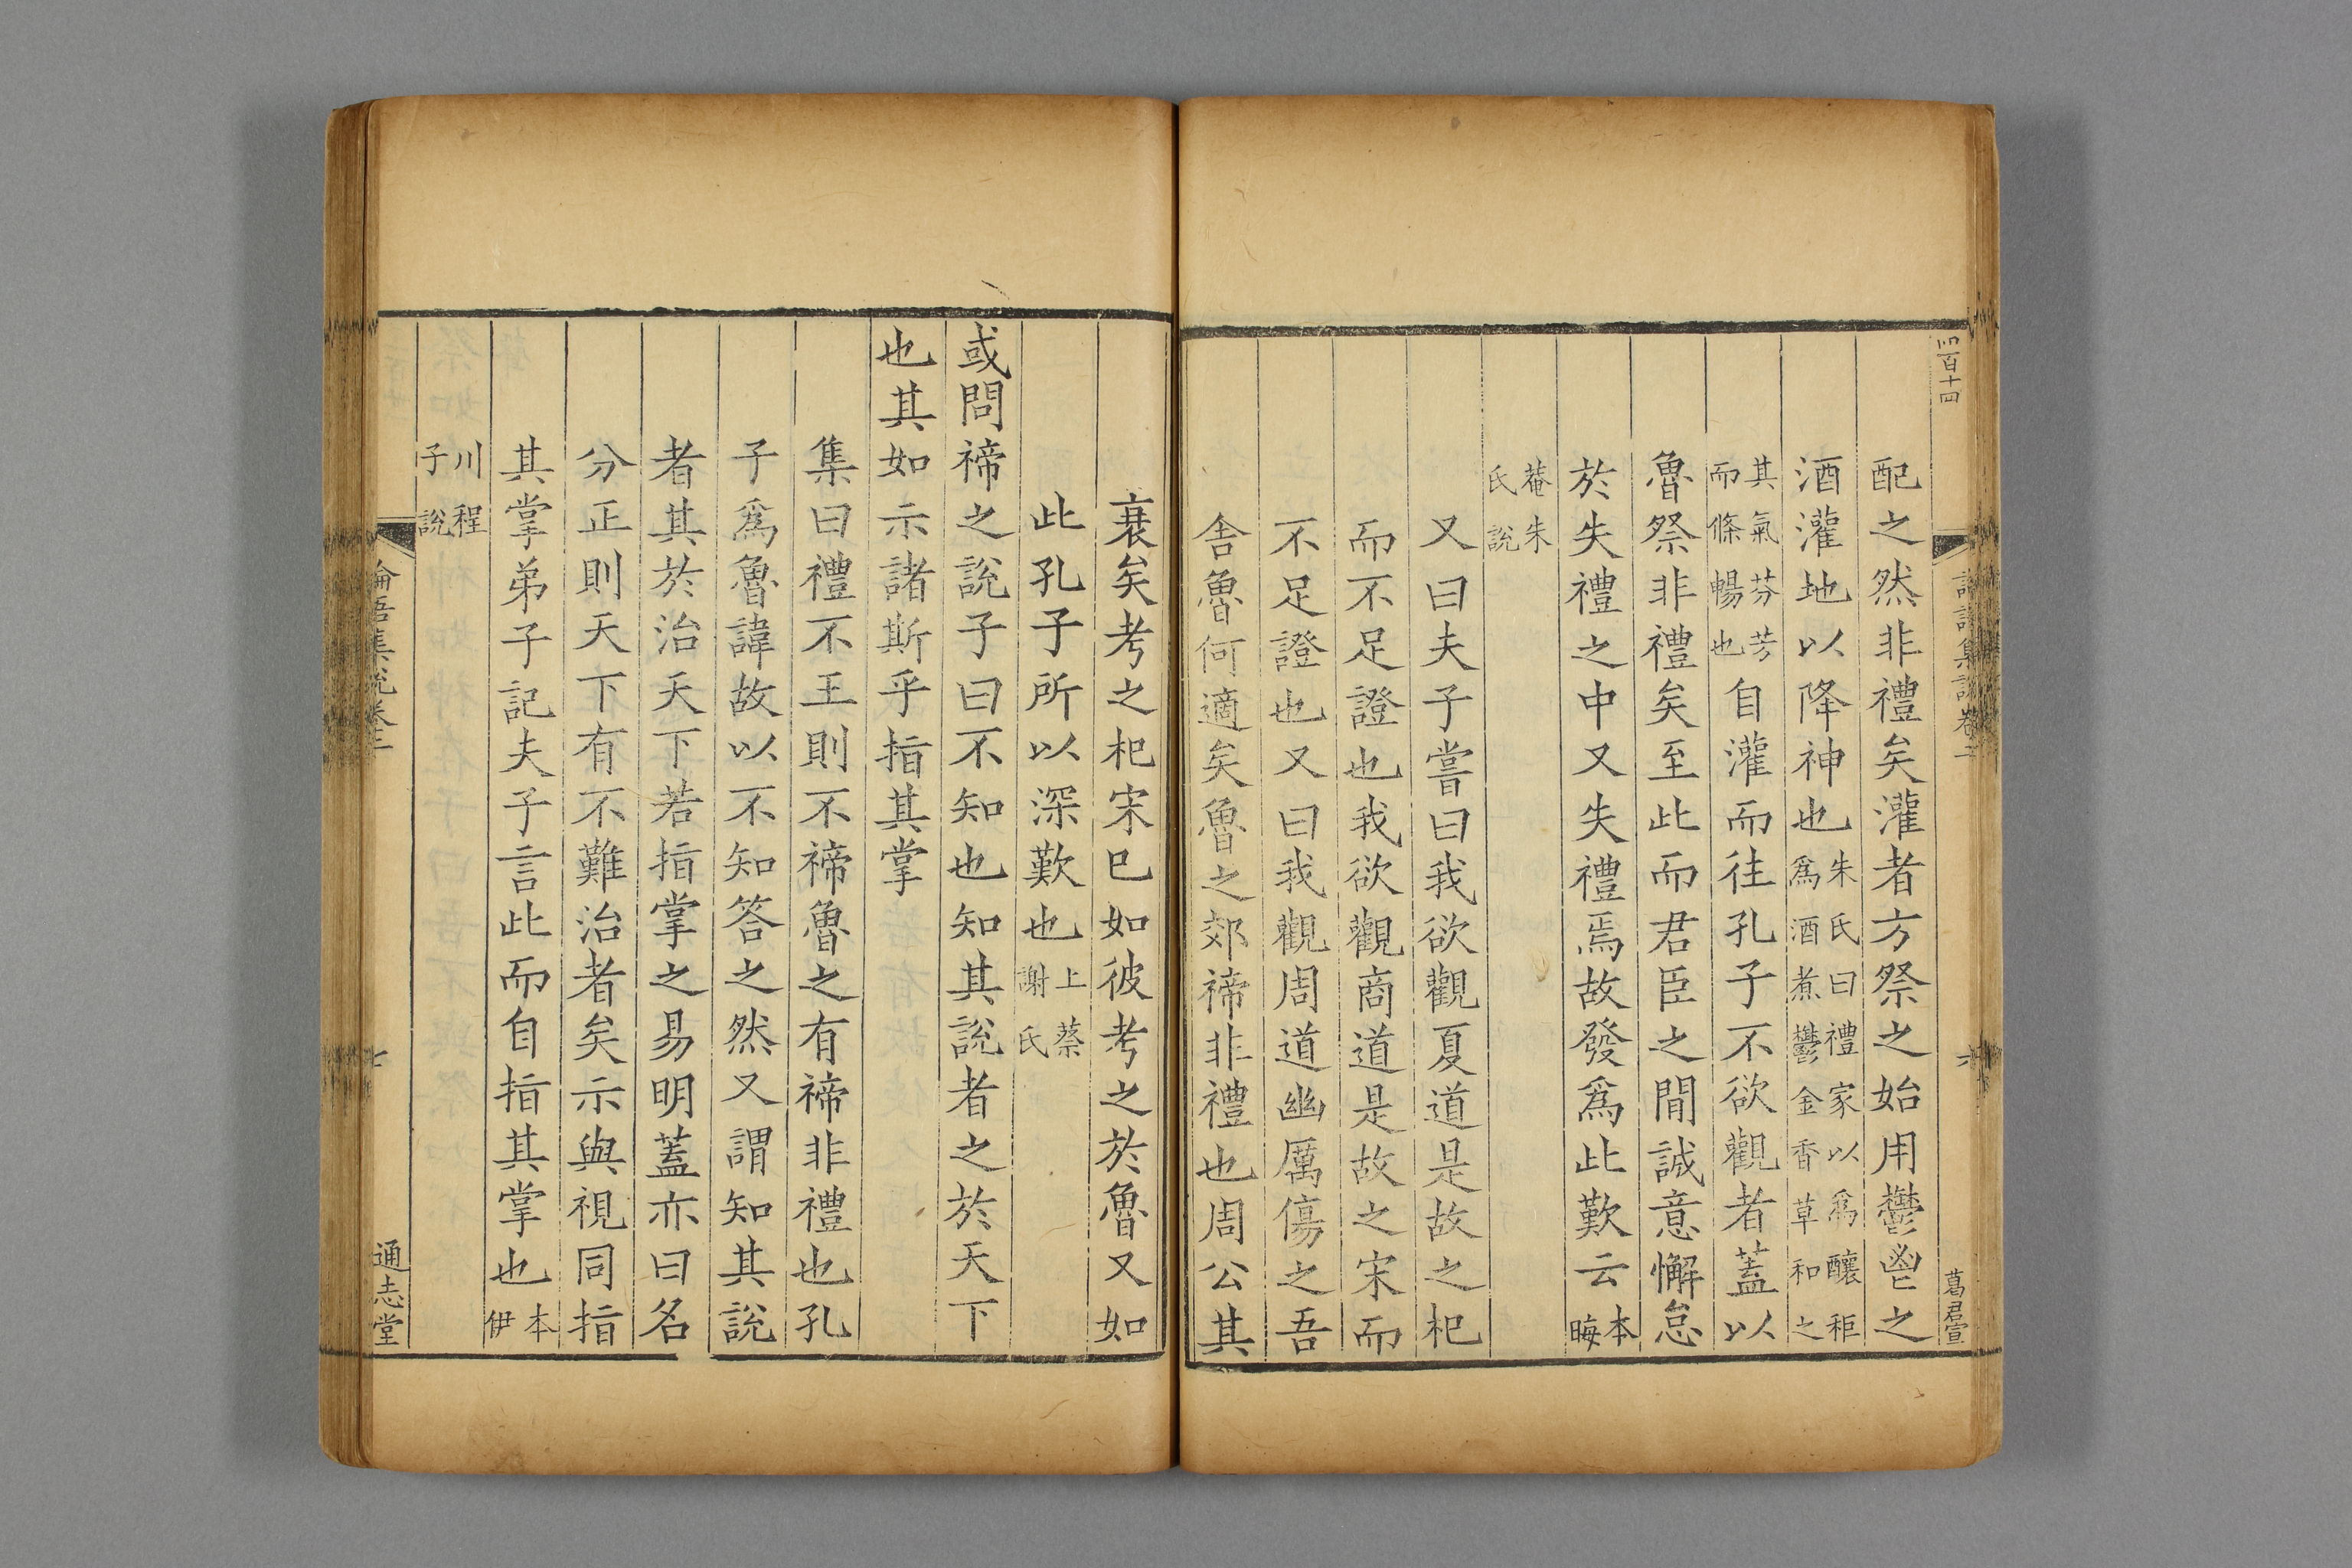 四百十四
論語集說卷二
六
葛君宣
配之然非禮矣灌者方祭之始用鬱鬯之
酒灌地以降神也朱氏曰禮家以爲釀秬爲酒煮鬱金香草和之
其氣芬芳而條暢也自灌而往孔子不欲觀者蓋以
魯祭非禮矣至此而君臣之間誠意懈怠
於失禮之中又失禮焉故發爲此歎云本晦
菴朱氏說
又曰夫子嘗曰我欲觀夏道是故之杞
而不足證也我欲觀商道是故之宋而
不足證也又曰我觀周道幽厲傷之吾
舍魯何適矣魯之郊禘非禮也周公其
衰矣考之杞宋巳如彼考之於魯又如
此孔子所以深歎也上蔡謝氏
或問禘之說子曰不知也知其說者之於天下
也其如示諸斯乎指其掌
集曰禮不王則不禘魯之有禘非禮也孔
子爲魯諱故以不知答之然又謂知其說
者其於治天下若指掌之易明蓋亦曰名
分正則天下有不難治者矣示與視同指
其掌弟子記夫子言此而自指其掌也本伊
川程子說
論語集說卷二
七
通志堂